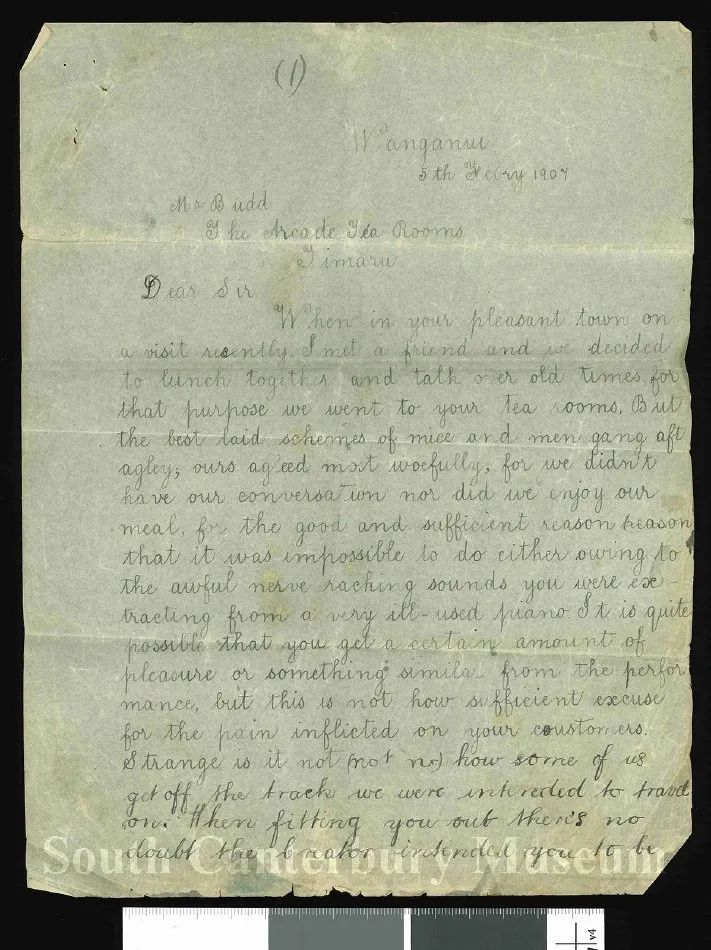 (1)
Wanganui
5th Febry 1907
Mr Budd
The Arcade Tea Rooms
Timaru
Dear Sir
When in your pleasant town on
a visit recently I met a friend and we decided
to lunch together and talk o'er old times, for
that purpose we went to your tea rooms. But
the best laid schemes of mice and men gang aft
agley; ours agleed most woefully, for we didn't
have our conversation nor did we enjoy our
meal, for the good and sufficient reason reason
that it was impossible to do either owing to
the awful nerve racking sounds you were ex-
tracting from a very ill-used piano. It is quite
possible that you get a certain amount of
pleasure or something similar from the perfor
mance, but this is not how sufficient excuse
for the pain inflicted on your customers.
Strange is it not (not no) how some of us
get off the track we were intended to travel
on. When fitting you out there's no
doubt the Creator intended you to be
South Canterbury Museum